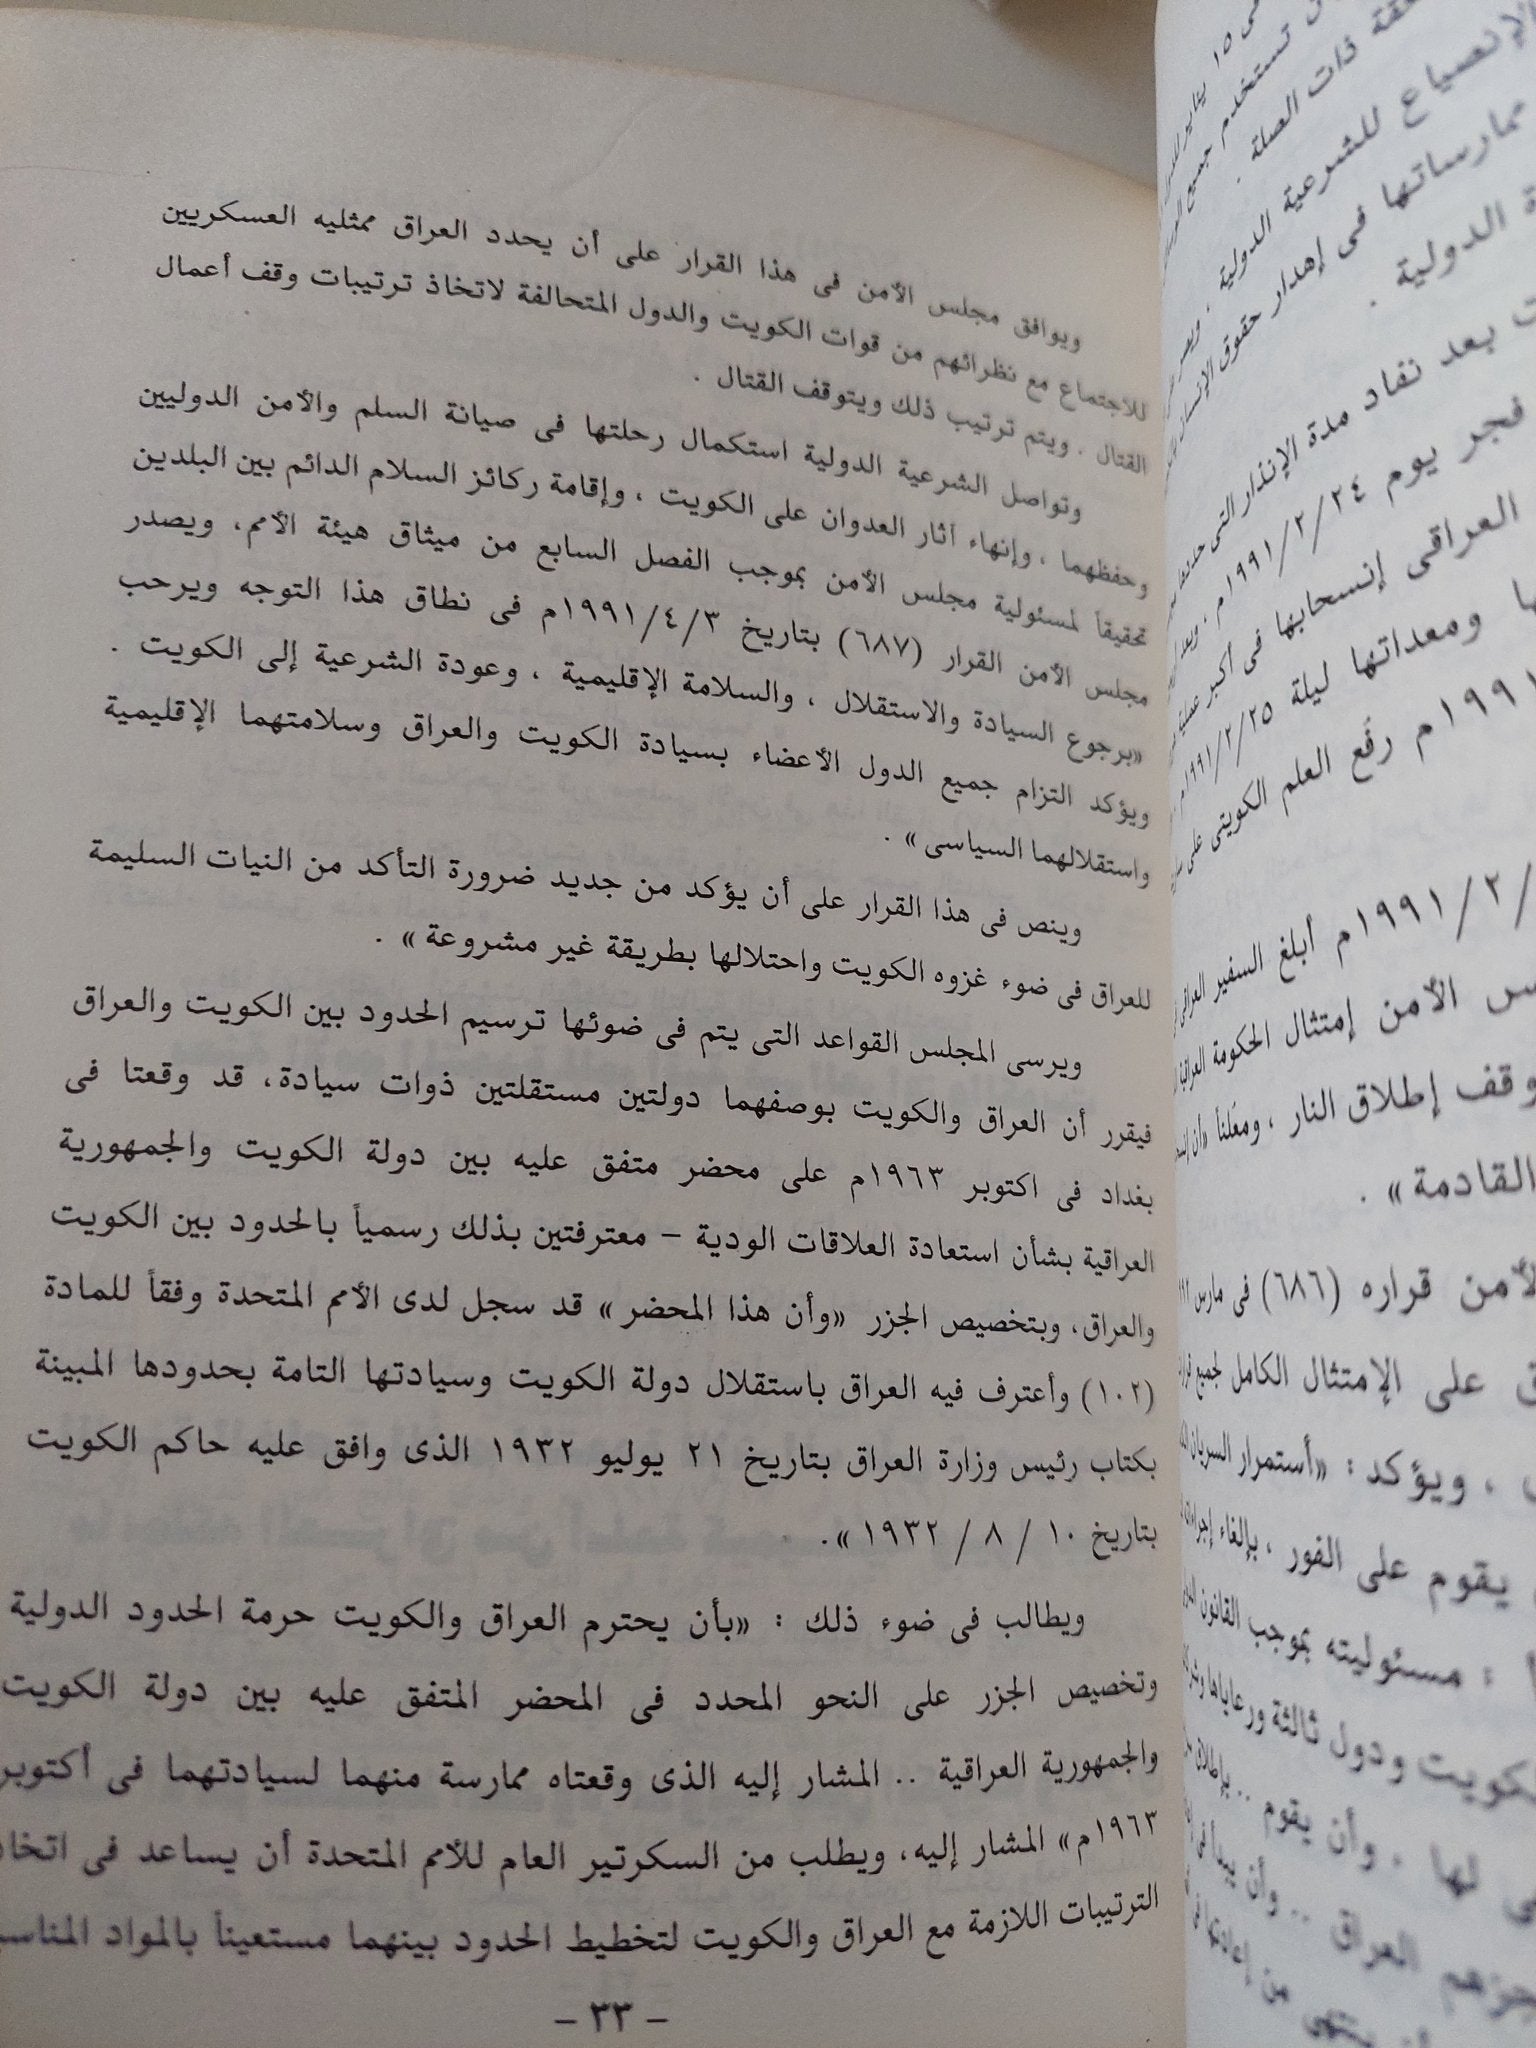 ويوافق مجلس الأمن فى هذا القرار على أن يحدد العراق ممثليه العسكريين
للاجتماع مع نظرائهم من قوات الكويت والدول المتحالفة لاتخاذ ترتيبات وقف أعمال
القتال . ويتم ترتيب ذلك ويتوقف القتال .
وتواصل الشرعية الدولية استكمال رحلتها فى صيانة السلم والأمن الدوليين
وحفظهما ، وإنهاء آثار العدوان على الكويت ، وإقامة ركائز السلام الدائم بين البلدين
تحقيقاً لمسئولية مجلس الأمن بموجب الفصل السابع من ميثاق هيئة الأمم، ويصدر
مجلس الأمن القرار (٦٨٧) بتاريخ ١٩٩١/٤/٣م فى نطاق هذا التوجه ويرحب
«برجوع السيادة والاستقلال ، والسلامة الإقليمية ، وعودة الشرعية إلى الكويت .
ويؤكد التزام جميع الدول الأعضاء بسيادة الكويت والعراق وسلامتهما الإقليمية
واستقلالهما السياسى» .
وينص فى هذا القرار على أن يؤكد من جديد ضرورة التأكد من النيات السليمة
للعراق فى ضوء غزوه الكويت واحتلالها بطريقة غير مشروعة» .
ويرسى المجلس القواعد التى يتم فى ضوئها ترسيم الحدود بين الكويت والعراق
فيقرر أن العراق والكويت بوصفهما دولتين مستقلتين ذوات سيادة، قد وقعتا فى
بغداد فى اكتوبر ١٩٦٣م على محضر متفق عليه بين دولة الكويت والجمهورية
العراقية بشأن استعادة العلاقات الودية – معترفتين بذلك رسمياً بالحدود بين الكويت
والعراق، وبتخصيص الجزر «وأن هذا المحضر» قد سجل لدى الأمم المتحدة وفقاً للمادة
(١٠٢) وأعترف فيه العراق باستقلال دولة الكويت وسيادتها التامة بحدودها المبينة
بكتاب رئيس وزارة العراق بتاريخ ٢١ يوليو ١٩٣٢ الذى وافق عليه حاكم الكويت
بتاريخ ١٠ / ٨ / ١٩٣٢».
ويطالب فى ضوء ذلك : «بأن يحترم العراق والكويت حرمة الحدود الدولية
وتخصيص الجزر على النحو المحدد فى المحضر المتفق عليه بين دولة الكويت
والجمهورية العراقية .. المشار إليه الذى وقعتاه ممارسة منهما لسيادتهما فى أكتوبر
١٩٦٣م» المشار إليه، ويطلب من السكرتير العام للأمم المتحدة أن يساعد فى
الترتيبات اللازمة مع العراق والكويت لتخطيط الحدود بينهما مستعيناً بالمواد
- ٣٣ -
ذات الصلة .
الإنصياع للشرعية الدولية ،
ممارساتها فى إهدار حقوق
الدولية .
بعد نفاد مدة الإنذار التى
فجر يوم ١٩٩١/٢/٢٤م ،
العراقى إنسحابها فى أكبر
ومعداتها ليلة ١٩٩١/٢/٢٥م
رفع العلم الكويتى على
١٩٩١/٢/ م أبلغ السفير العراقى
الأمن إمتثال الحكومة العراقية
وقف إطلاق النار ، ومعلناً «أن
القادمة» .
قراره (٦٨٦) فى مارس
على الإمتثال الكامل لجميع
، ويؤكد : «أستمرار السريان
يقوم على الفور ، بإلغاء
: مسئوليته بموجب القانون
ودول ثالثة ورعاياها
لها . وأن يقوم ..
العراق .. وأن يبدأ فى